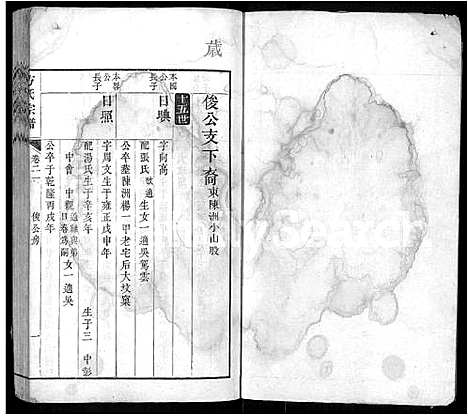 歳
俊公支下裔東陳洲小山股
十五世
本固公長子
日㬎
字向高
配張氏 女一適吳篤雲
公卒葬陳洲楊一甲老宅后大墳窠
本公長子
日照
字周文生于雍正戊申年
配湯氏生于辛亥年 生子三 中彭
中會 中觀 女一適吳
公卒于乾隆丙戌年
方氏宗譜
卷二一
俊公房
一